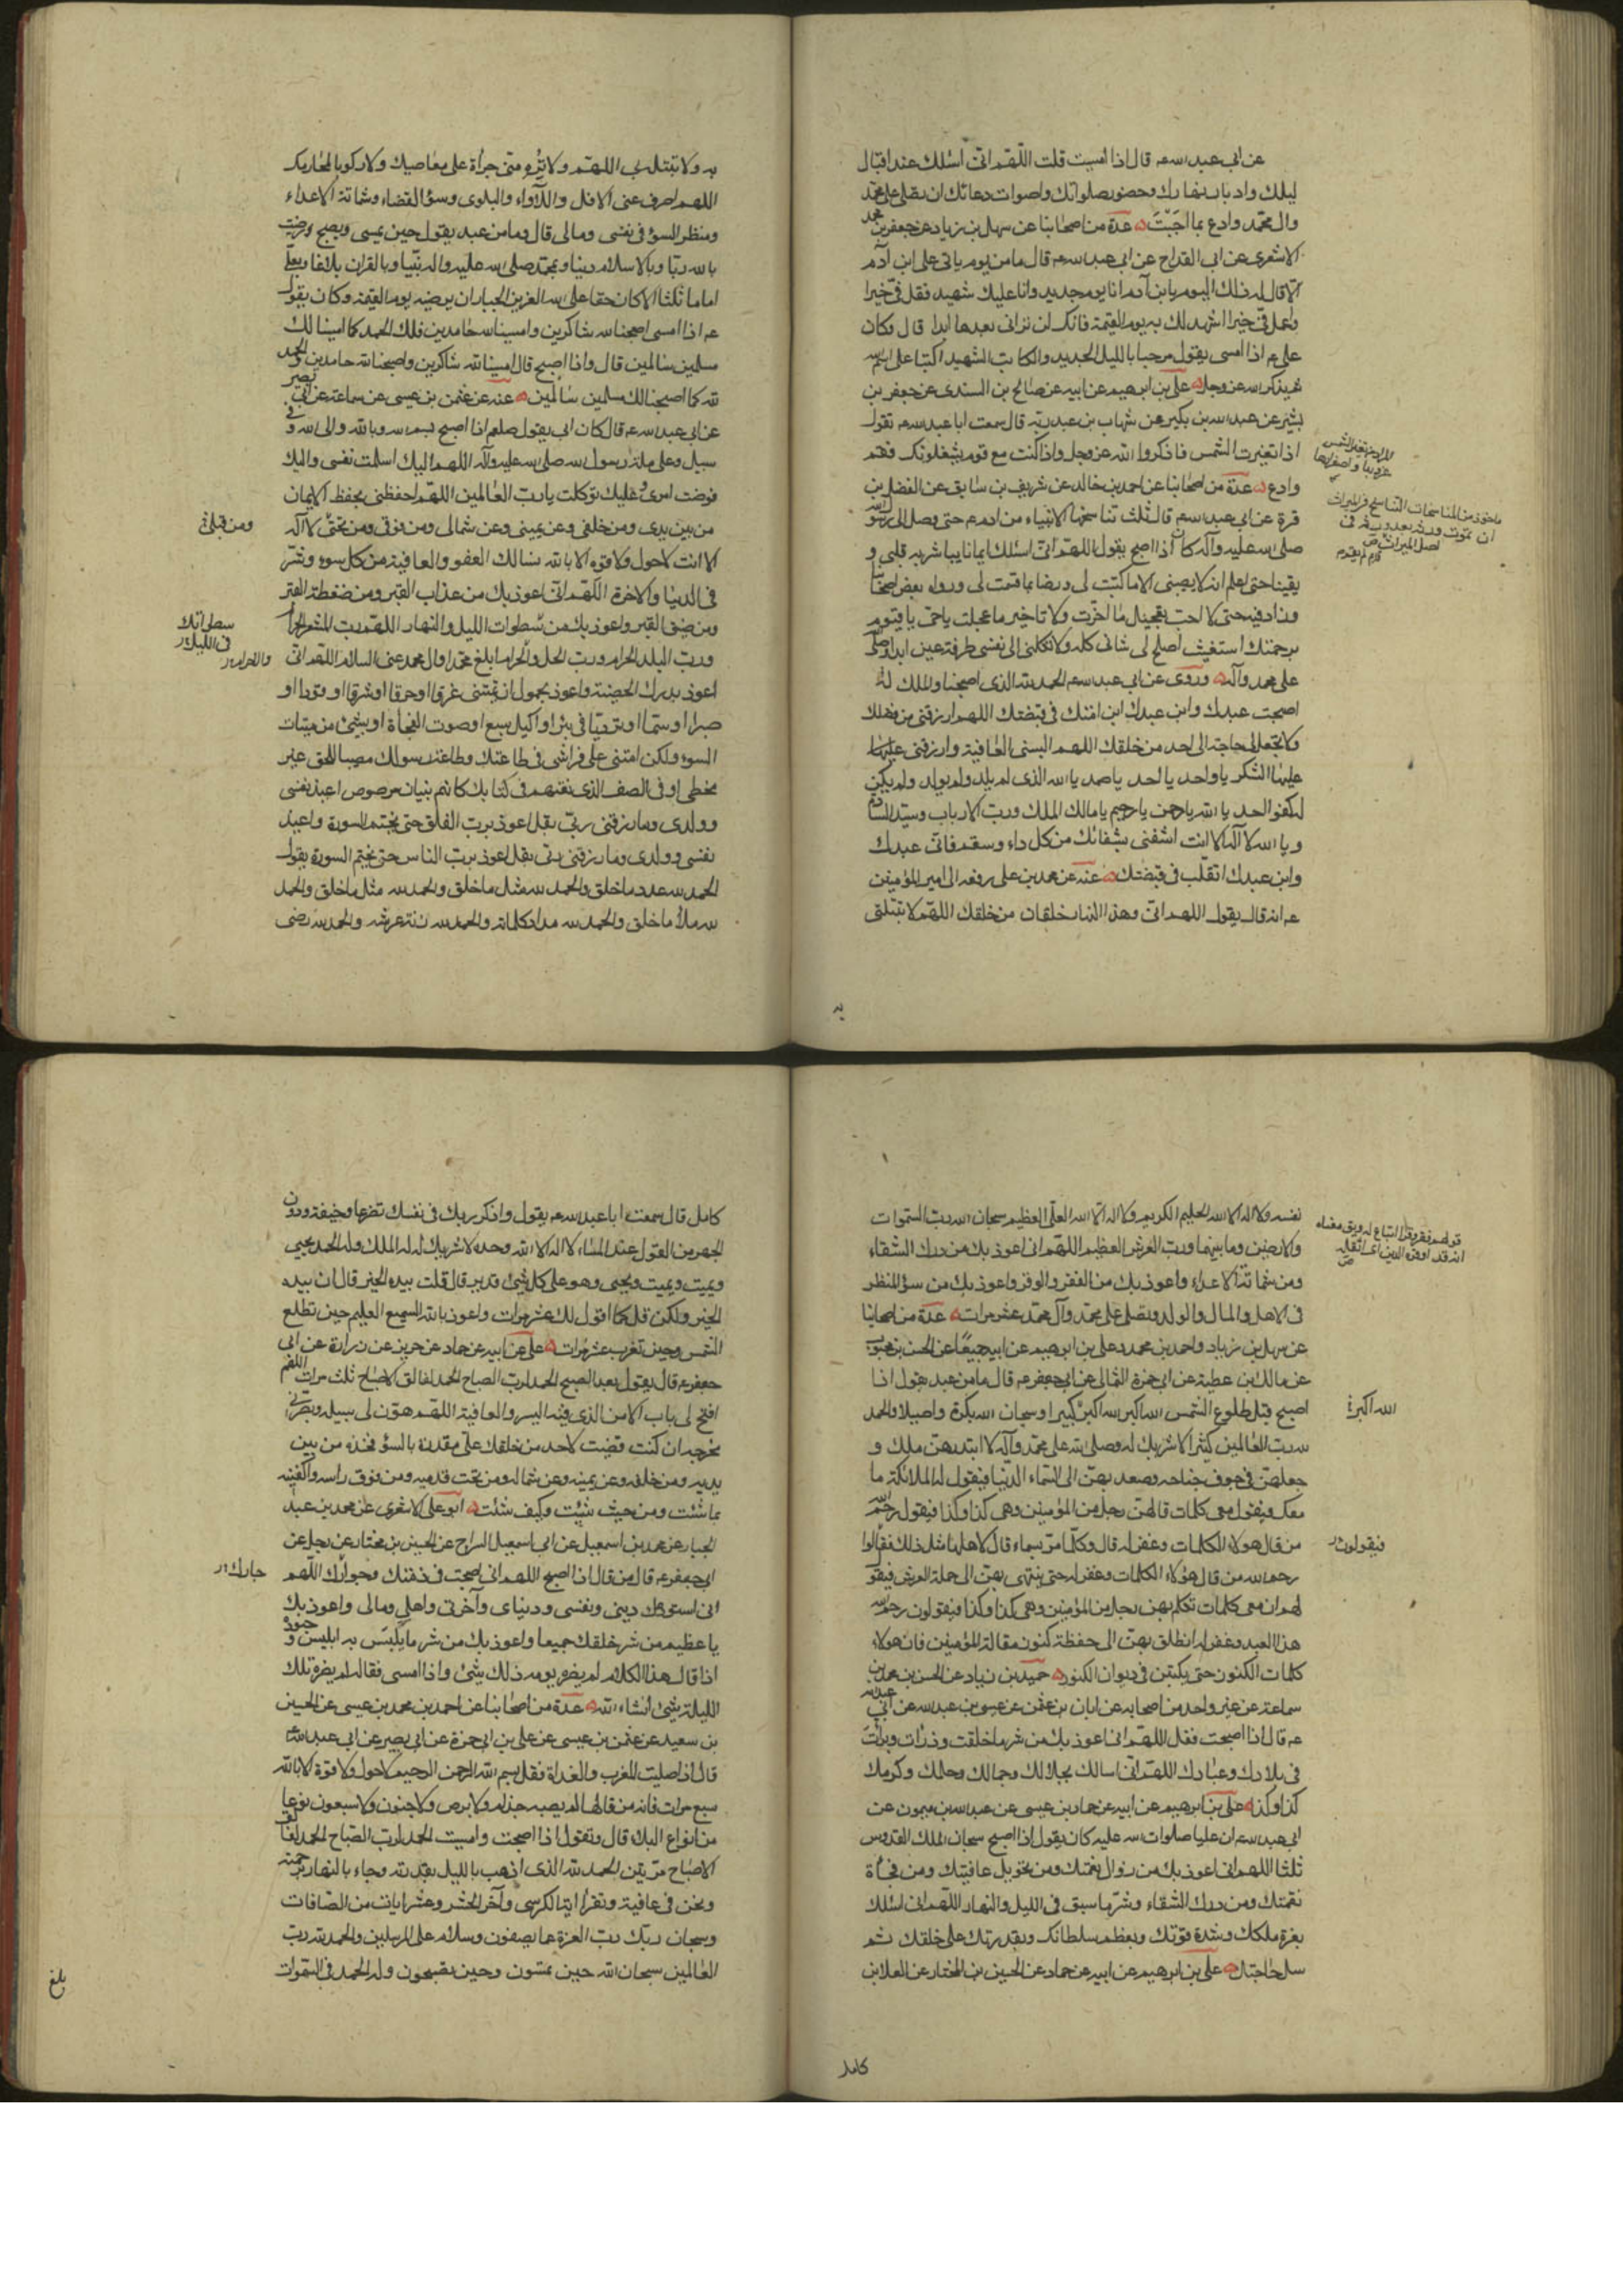 عن ابى عبد الله ع قال اذا امسيت قلت اللهم انى اسئلك عند اقبال
ليلك وادبار نهارك وحضور صلواتك واصوات دعائك ان تصلى على محمد
وال محمد وادع بما احببت عدة من اصحابنا عن سهل بن زياد عن جعفر بن محمد
الاشعرى عن ابن القداح عن ابى عبد الله ع قال ما من يوم ياتى على ابن آدم
الا قال له ذلك اليوم يا بن آدم انا يوم جديد وانا عليك شهيد فقل فىّ خيرا
واعمل فىّ خيرا اشهد لك به يوم القيمة فانك لن ترانى بعدها ابدا قال وكان
على ع اذا امسى يقول مرحبا بالليل الجديد والكاتب الشهيد اكتبا على اسم الله
ثم يذكر الله عز وجل على بن ابرهيم عن ابيه عن صالح بن السندى عن جعفر بن
بشير عن عبد الله بن بكير عن شهاب بن عبد ربه قال سمعت ابا عبد الله ع يقول
اذا تغيرت الشمس فاذكروا الله عز وجل واذا كنت مع قوم يشغلونك فقم
وادع عدة من اصحابنا عن احمد بن خالد عن شريف بن سابق عن الفضل بن
قرة عن ابى عبد الله ع قال ثلث تناسخها الانبياء من ادم ع حتى وصل الى رسول الله
صلى الله عليه وآله كان اذا اصبح يقول اللهم انى اسئلك ايمانا يباشر به قلبى و
يقينا حتى اعلم انه لا يصيبنى الا ما كتبت لى ورضا بما قسمت لى ورواه بعض اصحابنا
وزاد فيه حتى لا احب تعجيل ما اخرت ولا تاخير ما عجلت يا حى يا قيوم
برحمتك استغيث اصلح لى شانى كله ولا تكلنى الى نفسى طرفة عين ابدا وصلى
على محمد وآله وروى عن ابى عبد الله ع الحمد لله الذى اصبحنا والملك له
اصبحت عبدك وابن عبدك ابن امتك فى قبضتك اللهم ارزقنى من فضلك
ولا تجعل لى حاجة الى احد من خلقك اللهم البسنى العافية وارزقنى عليها
عليها الشكر يا واحد يا احد يا صمد يا الله الذى لم يلد ولم يولد ولم يكن
له كفوا احد يا الله يا رحمن يا رحيم يا مالك الملك ورب الارباب وسيد السادات
ويا الله لا آله الا انت اشفنى بشفائك من كل داء وسقم فانى عبدك
وابن عبدك اتقلب فى قبضتك عنه عن محمد بن على رفعه الى امير المؤمنين
ع انه قال يقول اللهم انى وهذا النهار خلقان من خلقك اللهم لا تبتلنى
به
به ولا تبتله بى اللهم ولا تره منى جرأة على معاصيك ولا ركوبا لمحارمك
اللهم اصرف عنى الازل واللأواء والبلوى وسؤ القضاء وشماتة الاعداء
ومنظر السؤ فى نفسى ومالى قال وما من عبد يقول حين يمسى ويصبح رضيت
بالله ربا وبالاسلام دينا وبمحمد صلى الله عليه واله نبيا وبالقران بلاغا وبعلى
اماما ثلثا الا كان حقا على الله العزيز الجبار ان يرضيه يوم القيمة وكان يقول
ع اذا امسى اصبحنا لله شاكرين وامسينا لله حامدين فلك الحمد كما امسينا لك
مسلمين سالمين قال واذا اصبح قال امسينا لله شاكرين واصبحنا لله حامدين والحمد
لله كما اصبحنا لك مسلمين سالمين عنه عن عثمن بن عيسى عن سماعة عن ابى بصير
عن ابى عبد الله ع قال كان ابى يقول صلعم اذا اصبح بسم الله وبالله والى الله وفى
سبيل وعلى ملة رسول الله صلى الله عليه وآله اللهم اليك اسلمت نفسى واليك
فوضت امرى وعليك توكلت يا رب العالمين اللهم احفظنى بحفظ الايمان
من بين يدى ومن خلفى وعن يمينى وعن شمالى ومن فوقى ومن تحتى لا اله
ومن قبلى
الا انت لا حول ولا قوة الا بالله نسالك العفو والعافية من كل سوء وشر
فى الدنيا والاخرة اللهم انى اعوذ بك من عذاب القبر ومن ضغطة القبر
ومن ضيق القبر واعوذ بك من سطوات الليل والنهار اللهم رب المشعر الحرام
سطواتك فى الليل
ورب البلد الحرام ورب الحل والحرام ابلغ محمدا وال محمد عنى السلام اللهم انى
اعوذ بدرعك الحصينة واعوذ بجمعك ان تميتنى غرقا او حرقا او شرقا او قودا او
صبرا او سما او ترديا فى بئر او اكيل سبع او موت الفجأة او بشئ من ميتات
السوء ولكن امتنى على فراشى فى طاعتك وطاعة رسولك مصيبا للحق غير
مخطى او فى الصف الذى نعتهم فى كتابك كانهم بنيان مرصوص اعيذ نفسى
وولدى وما رزقنى ربى بقل اعوذ برب الفلق حتى يختم السورة واعيذ
نفسى وولدى وما رزقنى ربى بقل اعوذ برب الناس حتى يختم السورة يقول
الحمد لله عدد ما خلق والحمد لله مثل ما خلق والحمد لله مثل ما خلق والحمد
لله ملأ ما خلق والحمد لله مداد كلماته والحمد لله زنة عرشه والحمد لله رضى
نفسه ولا اله الا الله الحليم الكريم ولا اله الا الله العلى العظيم سبحان الله رب السموات
والارضين وما بينهما ورب العرش العظيم اللهم انى اعوذ بك من درك الشقاء
ومن شماتة الاعداء واعوذ بك من الفقر والوقر واعوذ بك من سؤ المنظر
فى الاهل والمال والولد ويصلى على محمد وآل محمد عشر مرات عدة من اصحابنا
عن سهل بن زياد واحمد بن محمد وعلى بن ابرهيم عن ابيه جميعا عن الحسن بن محبوب
عن مالك بن عطية عن ابى حمزة الثمالى عن ابى جعفر ع قال ما من عبد يقول اذا
اصبح قبل طلوع الشمس الله اكبر الله اكبر كبيرا وسبحان الله بكرة واصيلا والحمد
الله اكبر
لله رب العالمين كثيرا لا شريك له وصلى الله على محمد وآله الا ابتدرهن ملك و
جعلهن فى جوف جناحه وصعد بهن الى السماء الدنيا فيقول له الملائكة ما
معك فيقول معى كلمات قالهن رجل من المؤمنين وهى كذا وكذا فيقول رحم الله
من قال هؤلاء الكلمات وغفر له قال وكلما مر بسماء قال لاهلها مثل ذلك فقالوا
فيقولون
رحم الله من قال هؤلاء الكلمات وغفر له حتى ينتهى بهن الى حملة العرش فيقول
لهم ان معى كلمات تكلم بهن رجل من المؤمنين وهى كذا وكذا فيقولون رحم الله
هذا العبد وغفر له انطلق بهن الى حفظة كنوز مقالة المؤمنين فان هؤلاء
كلمات الكنوز حتى يكتبن فى ديوان الكنوز حميد بن زياد عن الحسن بن محمد بن
سماعة عن غير واحد من اصحابه عن ابان بن عثمن عن عيسى بن عبد الله عن ابى عبد الله
ع قال اذا اصبحت فقل اللهم انى اعوذ بك من شر ما خلقت وذرات وبرأت
فى بلادك وعبادك اللهم انى اسالك بجلالك وجمالك وحلمك وكرمك
كذا وكذا على بن ابرهيم عن ابيه عن حماد بن عيسى عن عبد الله بن ميمون عن
ابى عبد الله ع ان عليا صلوات الله عليه كان يقول اذا اصبح سبحان الملك القدوس
ثلثا اللهم انى اعوذ بك من زوال نعمتك ومن تحويل عافيتك ومن فجأة
نقمتك ومن درك الشقاء وشر ما سبق فى الليل والنهار اللهم انى اسئلك
بعزة ملكك وشدة قوتك وبعظم سلطانك وبقدرتك على خلقك ثم
سل حاجتك على بن ابرهيم عن ابيه عن حماد عن الحسين بن المختار عن العلا بن
كامل
كامل قال سمعت ابا عبد الله ع يقول واذكر ربك فى نفسك تضرعا وخيفة ودون
الجهر من القول عند المساء لا اله الا الله وحده لا شريك له له الملك وله الحمد يحيى
ويميت ويميت ويحيى وهو على كل شئ قدير قال قلت بيده الخير قال ان بيده
الخير ولكن قل كما اقول لك عشر مرات واعوذ بالله السميع العليم حين تطلع
الشمس وحين تغرب عشر مرات على عن ابيه عن حماد عن حريز عن زرارة عن ابى
جعفر ع قال يقول بعد الصبح الحمد لرب الصباح الحمد لفالق الاصباح ثلث مرات اللهم
افتح لى باب الامر الذى فيه اليسر والعافية اللهم هون لى سبيله وبصرنى
مخرجه ان كنت قضيت لاحد من خلقك على مقدرة بالسؤ فخذه من بين
يديه ومن خلفه وعن يمينه وعن شماله ومن تحت قدميه ومن فوق راسه واكفنيه
بما شئت ومن حيث شئت وكيف شئت ابو على الاشعرى عن محمد بن عبد
الجبار عن محمد بن اسمعيل عن ابى اسمعيل السراج عن الحسين بن مختار عن رجل عن
ابى جعفر ع قال من قال اذا اصبح اللهم انى اصبحت فى ذمتك وجوارك اللهم
جارك
انى استودعك دينى ونفسى ودنياى وآخرتى واهلى ومالى واعوذ بك
يا عظيم من شر خلقك جميعا واعوذ بك من شر ما يلبس به ابليس وجنوده
اذا قال هذا الكلام لم يضره يومه ذلك شئ واذا امسى فقاله لم يضره تلك
الليلة شئ انشاء الله عدة من اصحابنا عن احمد بن محمد بن عيسى عن الحسين
بن سعيد عن عثمن بن عيسى عن على بن ابى حمزة عن ابى بصير عن ابى عبد الله
قال اذا صليت المغرب والغداة فقل بسم الله الرحمن الرحيم لا حول ولا قوة الا بالله
سبع مرات فانه من قالها لم يصبه جذام ولا برص ولا جنون ولا سبعون نوعا
من انواع البلاء قال وتقول اذا اصبحت وامسيت الحمد لرب الصباح الحمد لفالق
الاصباح مرتين الحمد لله الذى اذهب بالليل بقدرته وجاء بالنهار برحمته
ونحن فى عافية وتقرأ اية الكرسى وآخر الحشر وعشر ايات من الصافات
وسبحان ربك رب العزة عما يصفون وسلام على المرسلين والحمد لله رب
العالمين سبحان الله حين تمسون وحين تصبحون وله الحمد فى السموات
بلغ